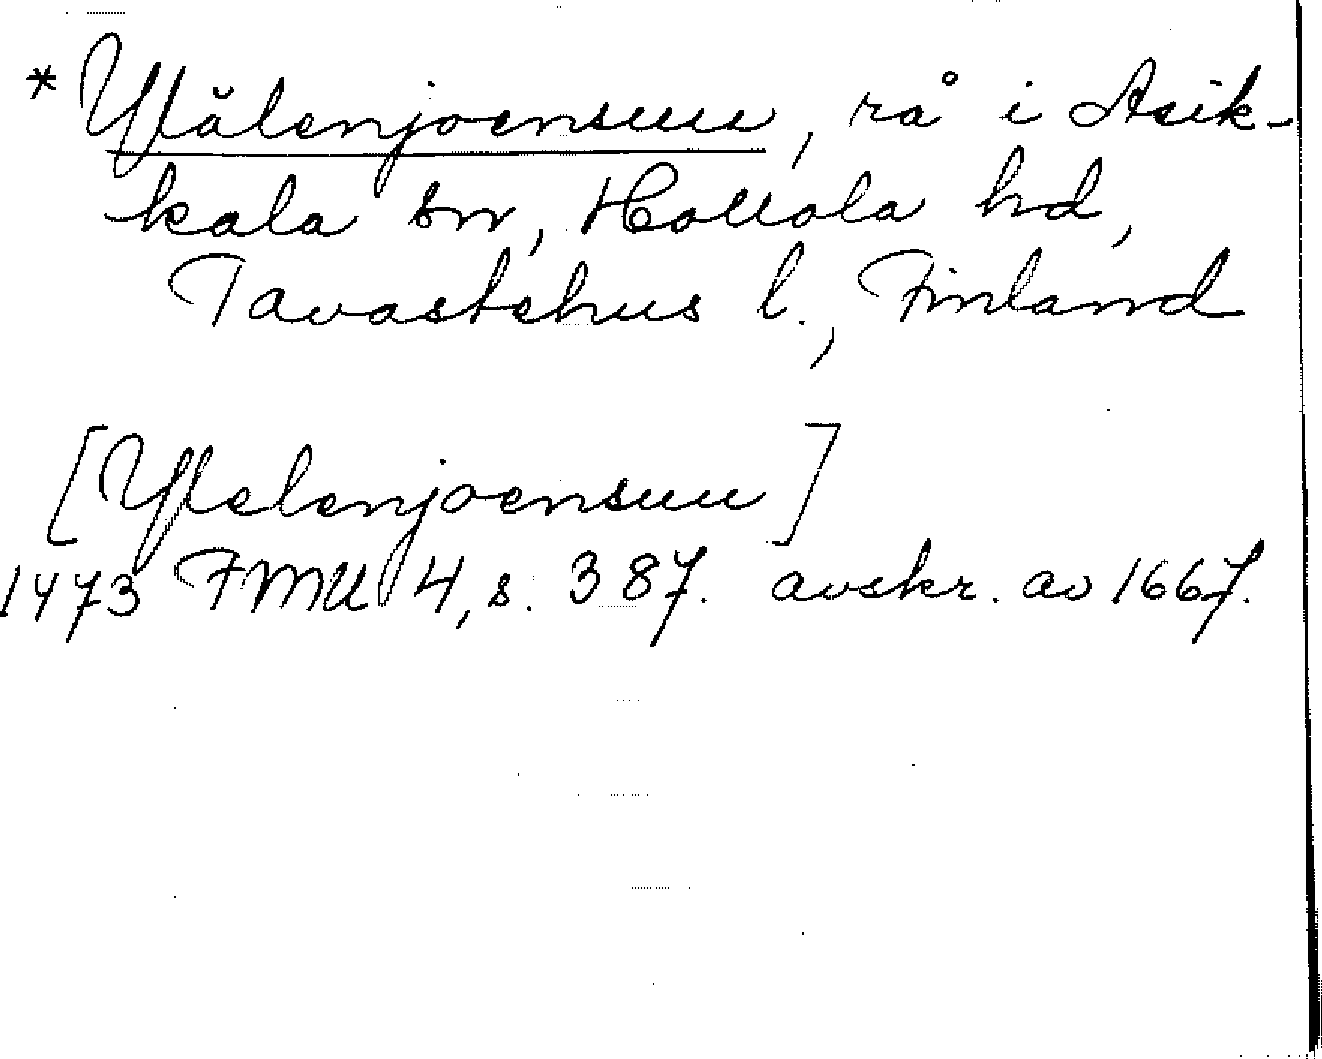 * Ylälenjoensuu, rå i Asik-
kala sn, Hollola hd,
Tavastehus l., Finland
[Ylelenjoensuu]
1473 FMU 4, s. 387. avskr. av 1667.